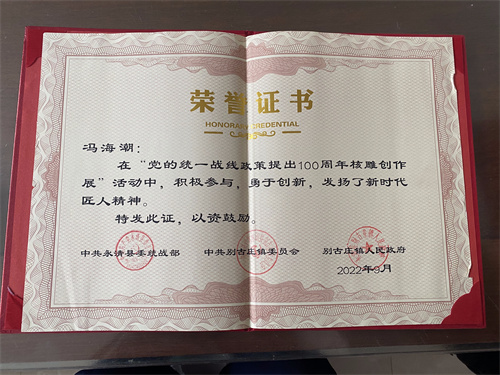 荣誉证书
HONORARY CREDENTIAL
冯海潮：
在“党的统一战线政策提出100周年核雕创作
展”活动中，积极参与，勇于创新，发扬了新时代
匠人精神。
特发此证，以资鼓励。
中共永清县委统战部 中共别古庄镇委员会 别古庄镇人民政府
2022年9月